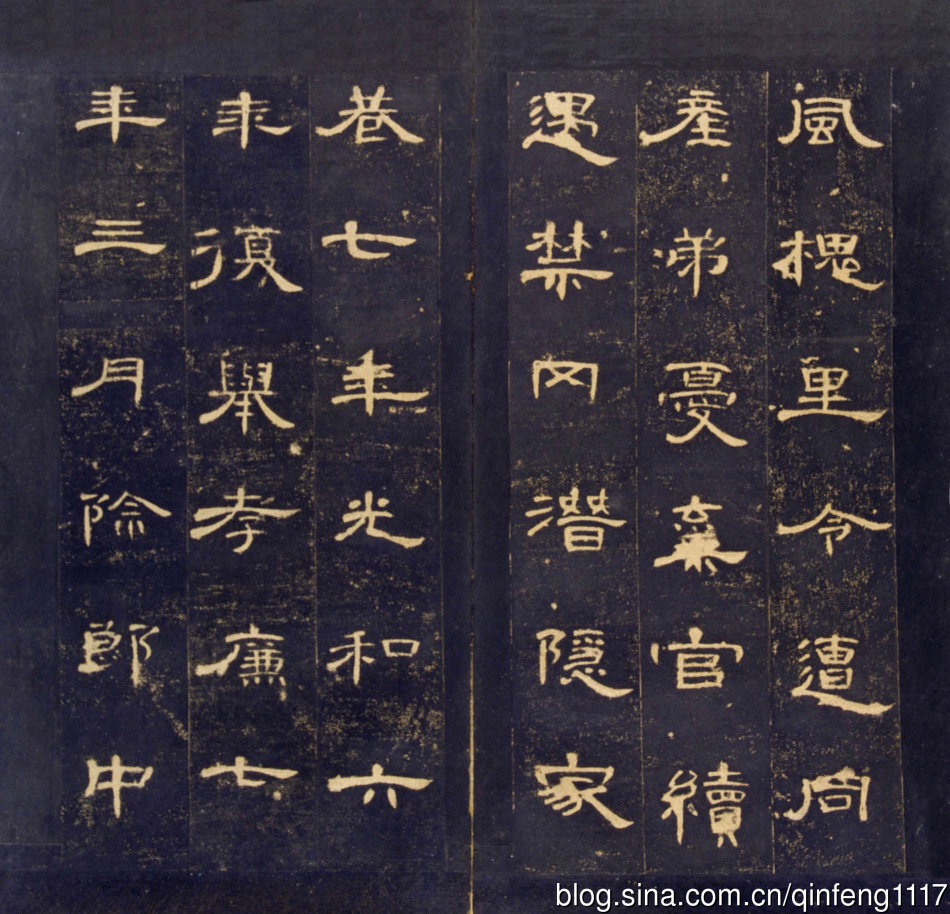 風槐里令遭同
產弟憂棄官續
遇禁网潛隱家
巷七年光和六
年復舉孝廉七
年三月除郎中
blog.sina.com.cn/qinfeng1117